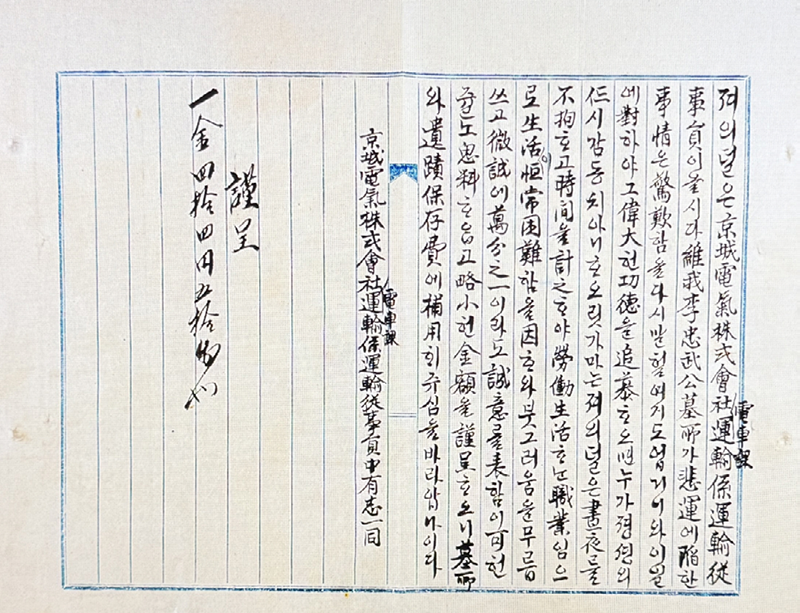 져의덜은京城電氣株式會社電車課運輸係運輸從
事員이올시다維我李忠武公墓所가悲運에陷한
事情은驚歎함을다시말헐여기도업거니와이일
에對하야그偉大헌功德을追慕호오면누가졍셩의
시감동치아니호오릿가마는져의덜은晝夜를
不拘호고時間을計之호야勞働生活호난職業임으
로生活에恒常困難함을因호와붓그러움을무릅
쓰고微誠에萬分之一이라도誠意를表함이可헌
쥴노思料호옵고略小헌金額을謹呈호오니墓所
와遺蹟保存費에補用히쥬심을바라압나이다
京城電氣株式會社電車課運輸係運輸從事員中有志一同
謹呈
一金四拾四円五拾錢也